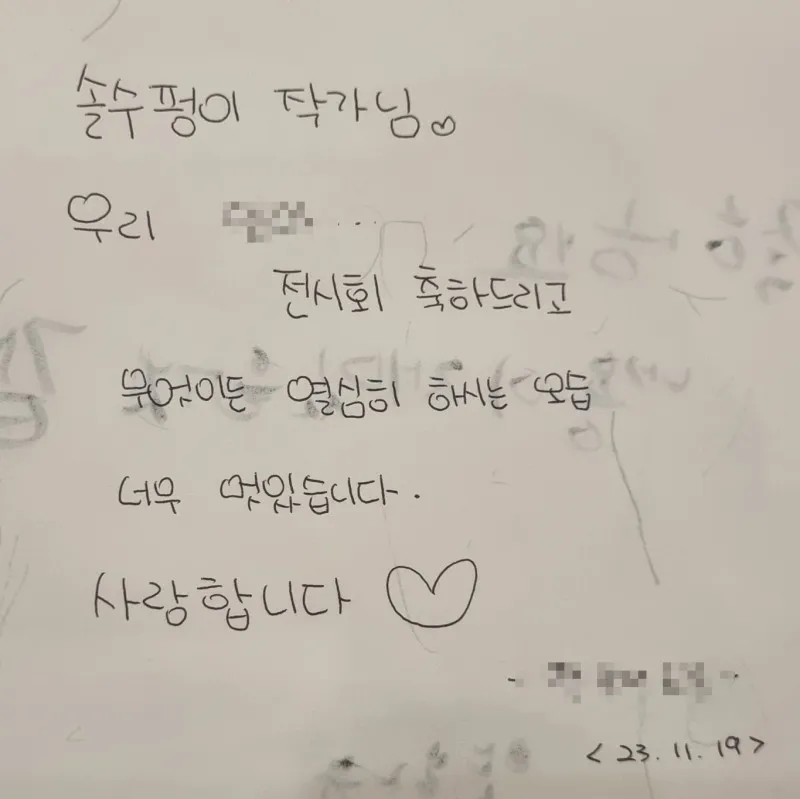 솔수펑이 작가님♡
우리 ...
전시회 축하드리고
무엇이든 열심히 하시는 모습
너무 멋있습니다.
사랑합니다 ♡
<23.11.19>